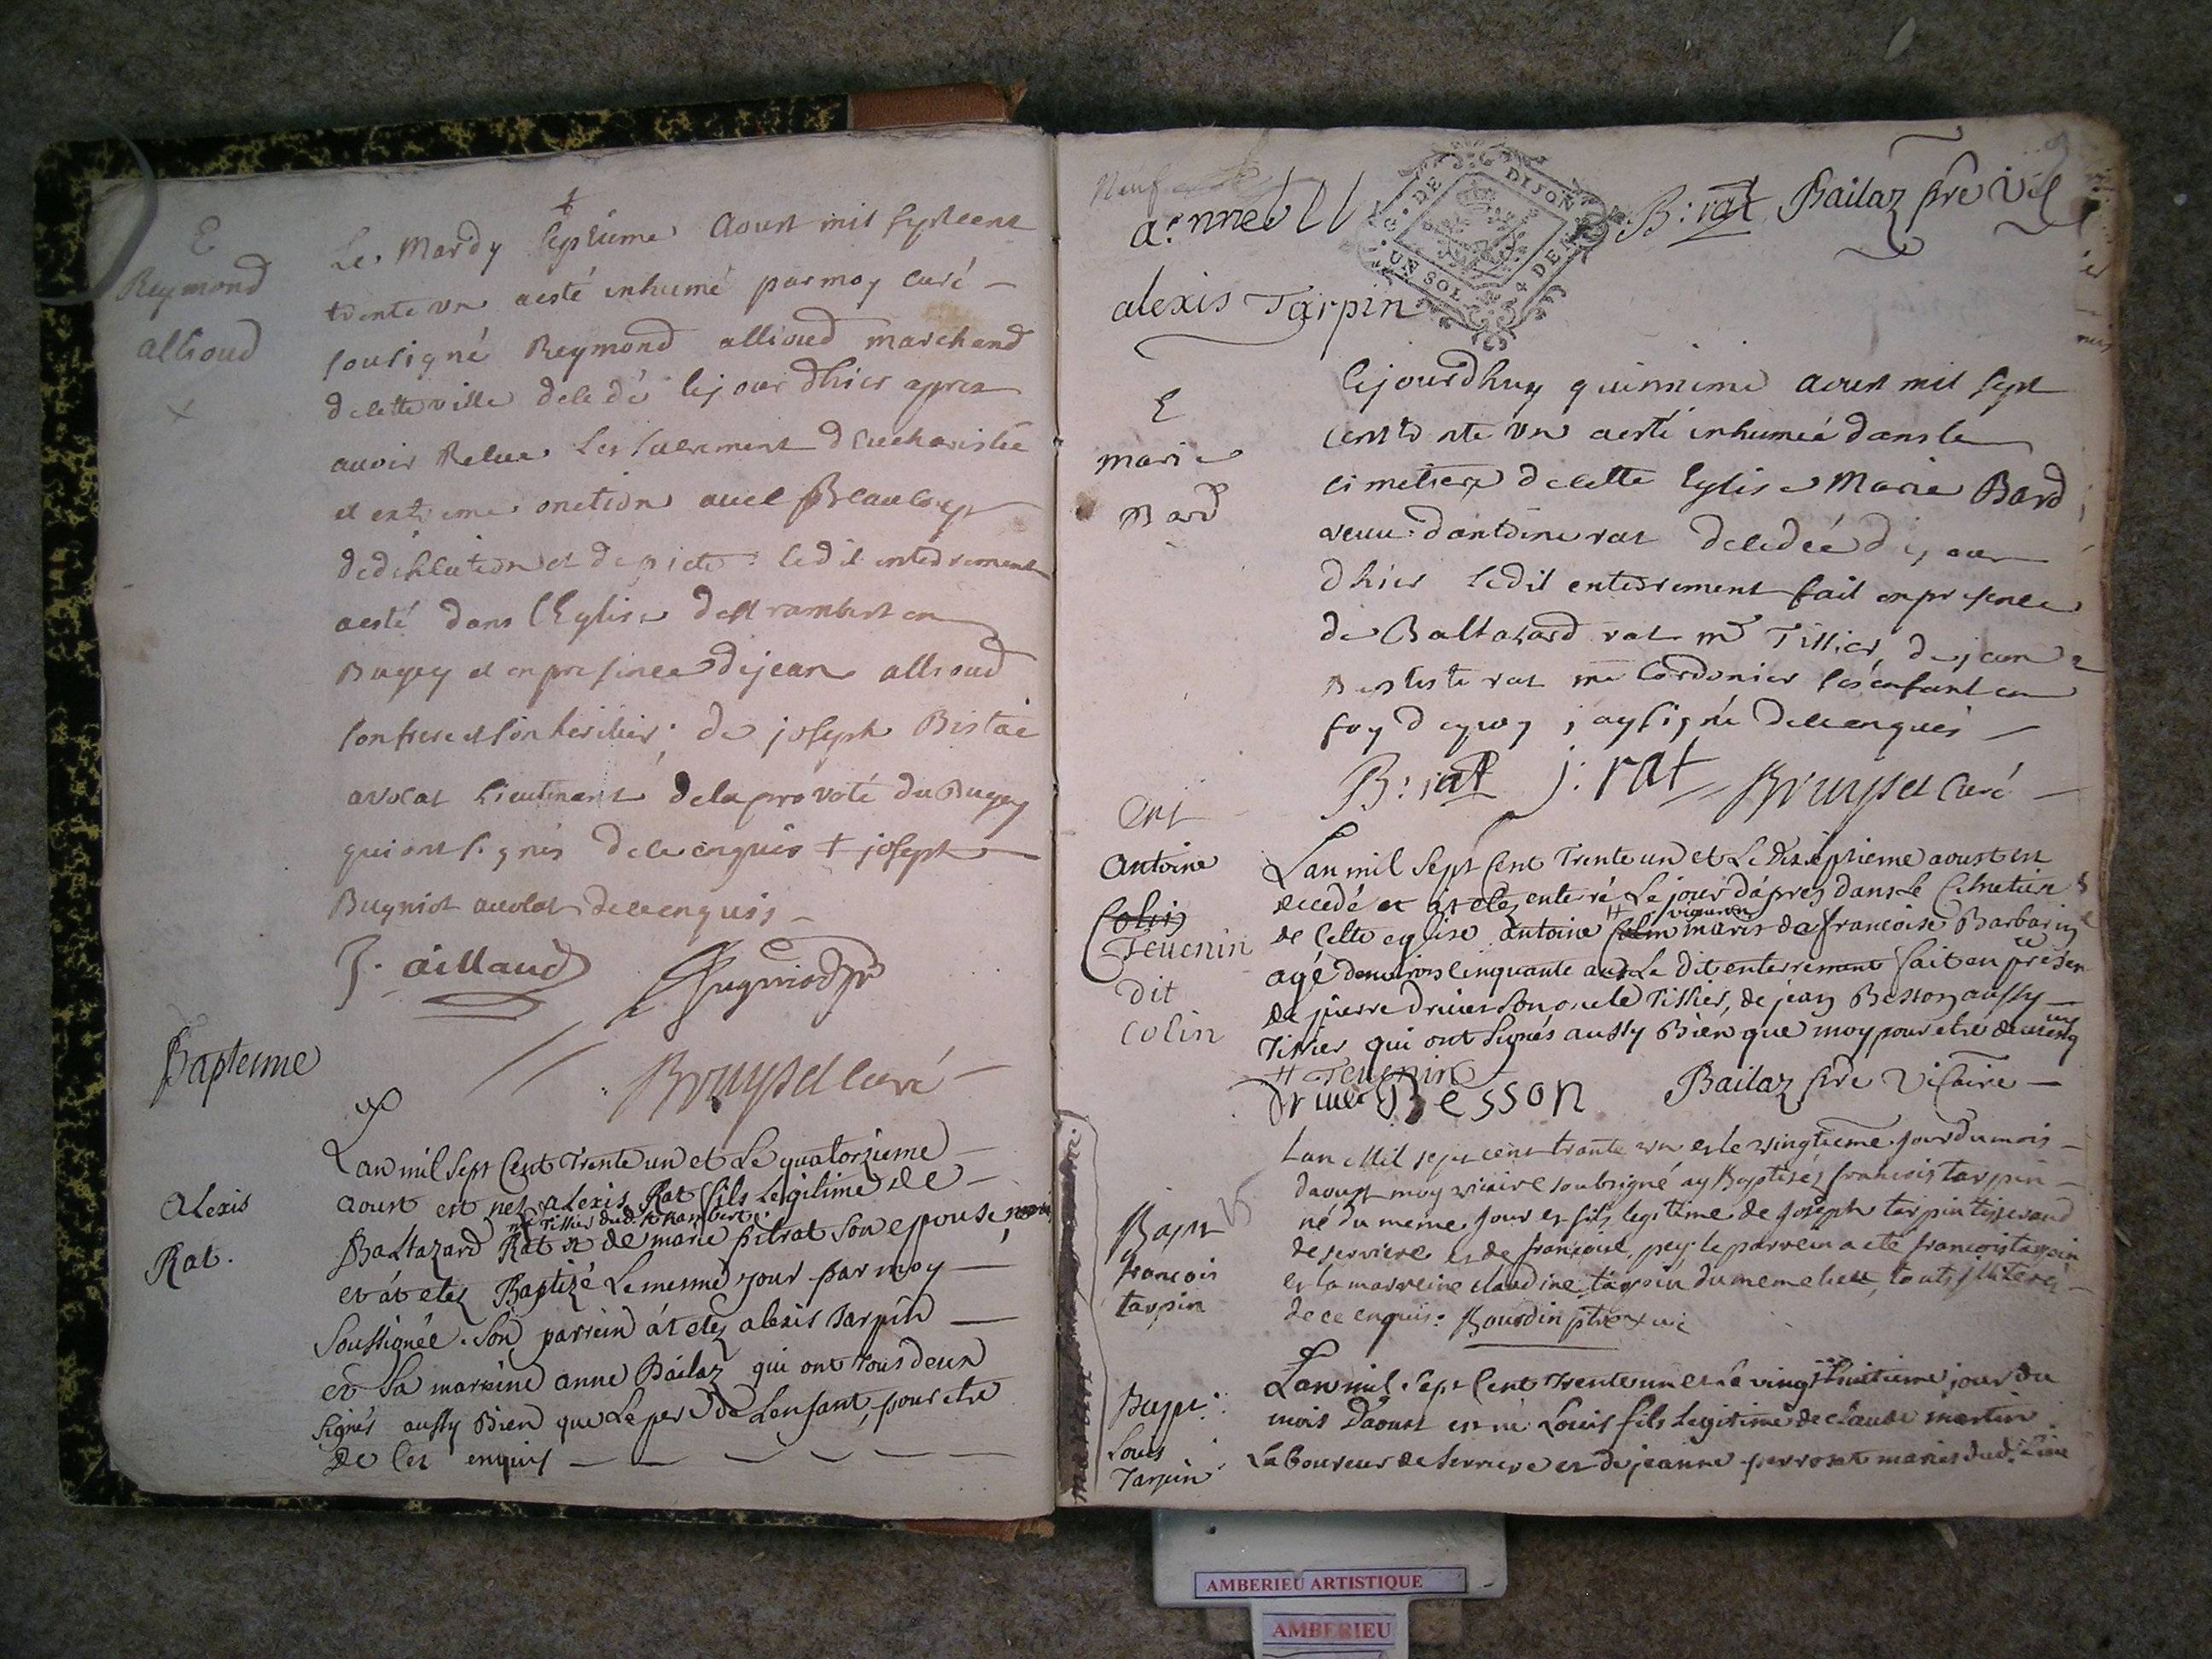 E
Reymond
allioud
Le Mardy septieme Aoust mil sept cent
trente un a esté inhumé par moy curé
sousigné Reymond allioud marchand
de cette ville decedé le jour dhier apres
avoir Receu les sacrement deucharistie
et extreme onction avec Beaucoup
de devotion et de pieté : ledit enterrement
a esté dans l'Eglise de st rambert en
Bugey et en presence de jean allioud
son frere et son heritier ; de joseph
avocat Lieutenant de la provoté du Bugey
qui ont signés de ce enquis + joseph
Bugniot avocat de ce enquis
J. aillaud
Bruyset curé
Bapteme
Alexis
Rat.
L'an mil sept Cent Trente un et Le quatorzieme
aoust est nez alexis Rat fils Legitime de
me Tissier dud. st Rambert
Baltazard Rat et de marie pitrat son epouse,
et at etez Baptizé Le mesme jour par moy
soussignée. Son parrein at etez alexis Tarpin
et Sa mareine anne Bailaz qui ont tous deux
signés aussy Bien que Le pere de L'enfant, pour etre
de ces enquis
Neuf
alexis Tarpin
DE DIJON
UN SOL
4 DEN
B: rat Bailaz ptre vic
E
marie
Bard
Cejourdhuy quinsieme aoust mil sept
cent trente un a esté inhumée dans le
cimetiere de cette Eglise Marie Bard
veuve d'antoine rat decedée du jour
dhier ledit enterrement fait en presence
de Baltasard rat me Tissier, de jean
Batiste rat me Cordonier ses enfant en
foy de quoy j'ay signé de ce enquis
B: rat j: rat Bruyset curé
Ent
Antoine
Colin
Tevenin
dit
Colin
L'an mil sept Cent Trente un et Le dixseptieme aoust est
decedé et at etez enterré Le jour d'apres dans Le Cimetiere
vigneron
de Cette eglise antoine Colin maris de francoise Barbarin
agé denviron cinquante ans Le dit enterrement fait en presen
ce
de pierre druier son oncle Tissier, de jean Besson aussy
Tissier qui ont signés aussy Bien que moy pour etre de ce enq
uis
Tevenin
Besson Bailaz ptre Vicaire
Bapt
françois
tarpin
L'an Mil sept cent trante un et le vingtieme jour du mois
daoust moy vicaire soubsigné ay Baptisez francois tarpin
né du meme jour et fils legitime de joseph tarpin tisserand
de serriere et de francoise pey. le parrein a eté francois tarpin
et la marreine claudine tarpin du meme lieu, touts illiterés
de ce enquis. Bourdin ptre & vic
Bapt.
Louis
Tarpin
L'an mil sept Cent trente un et Le vingt huitieme jour du
mois D'aoust est né Louis fils Legitime de claude martin
Laboureur de serriere et de jeanne perrozet mariés dud. Lieu
AMBERIEU ARTISTIQUE
AMBERIEU